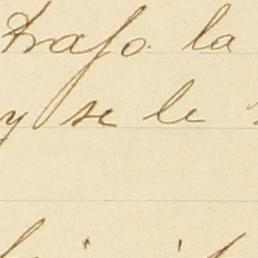 trafo. la
y se le